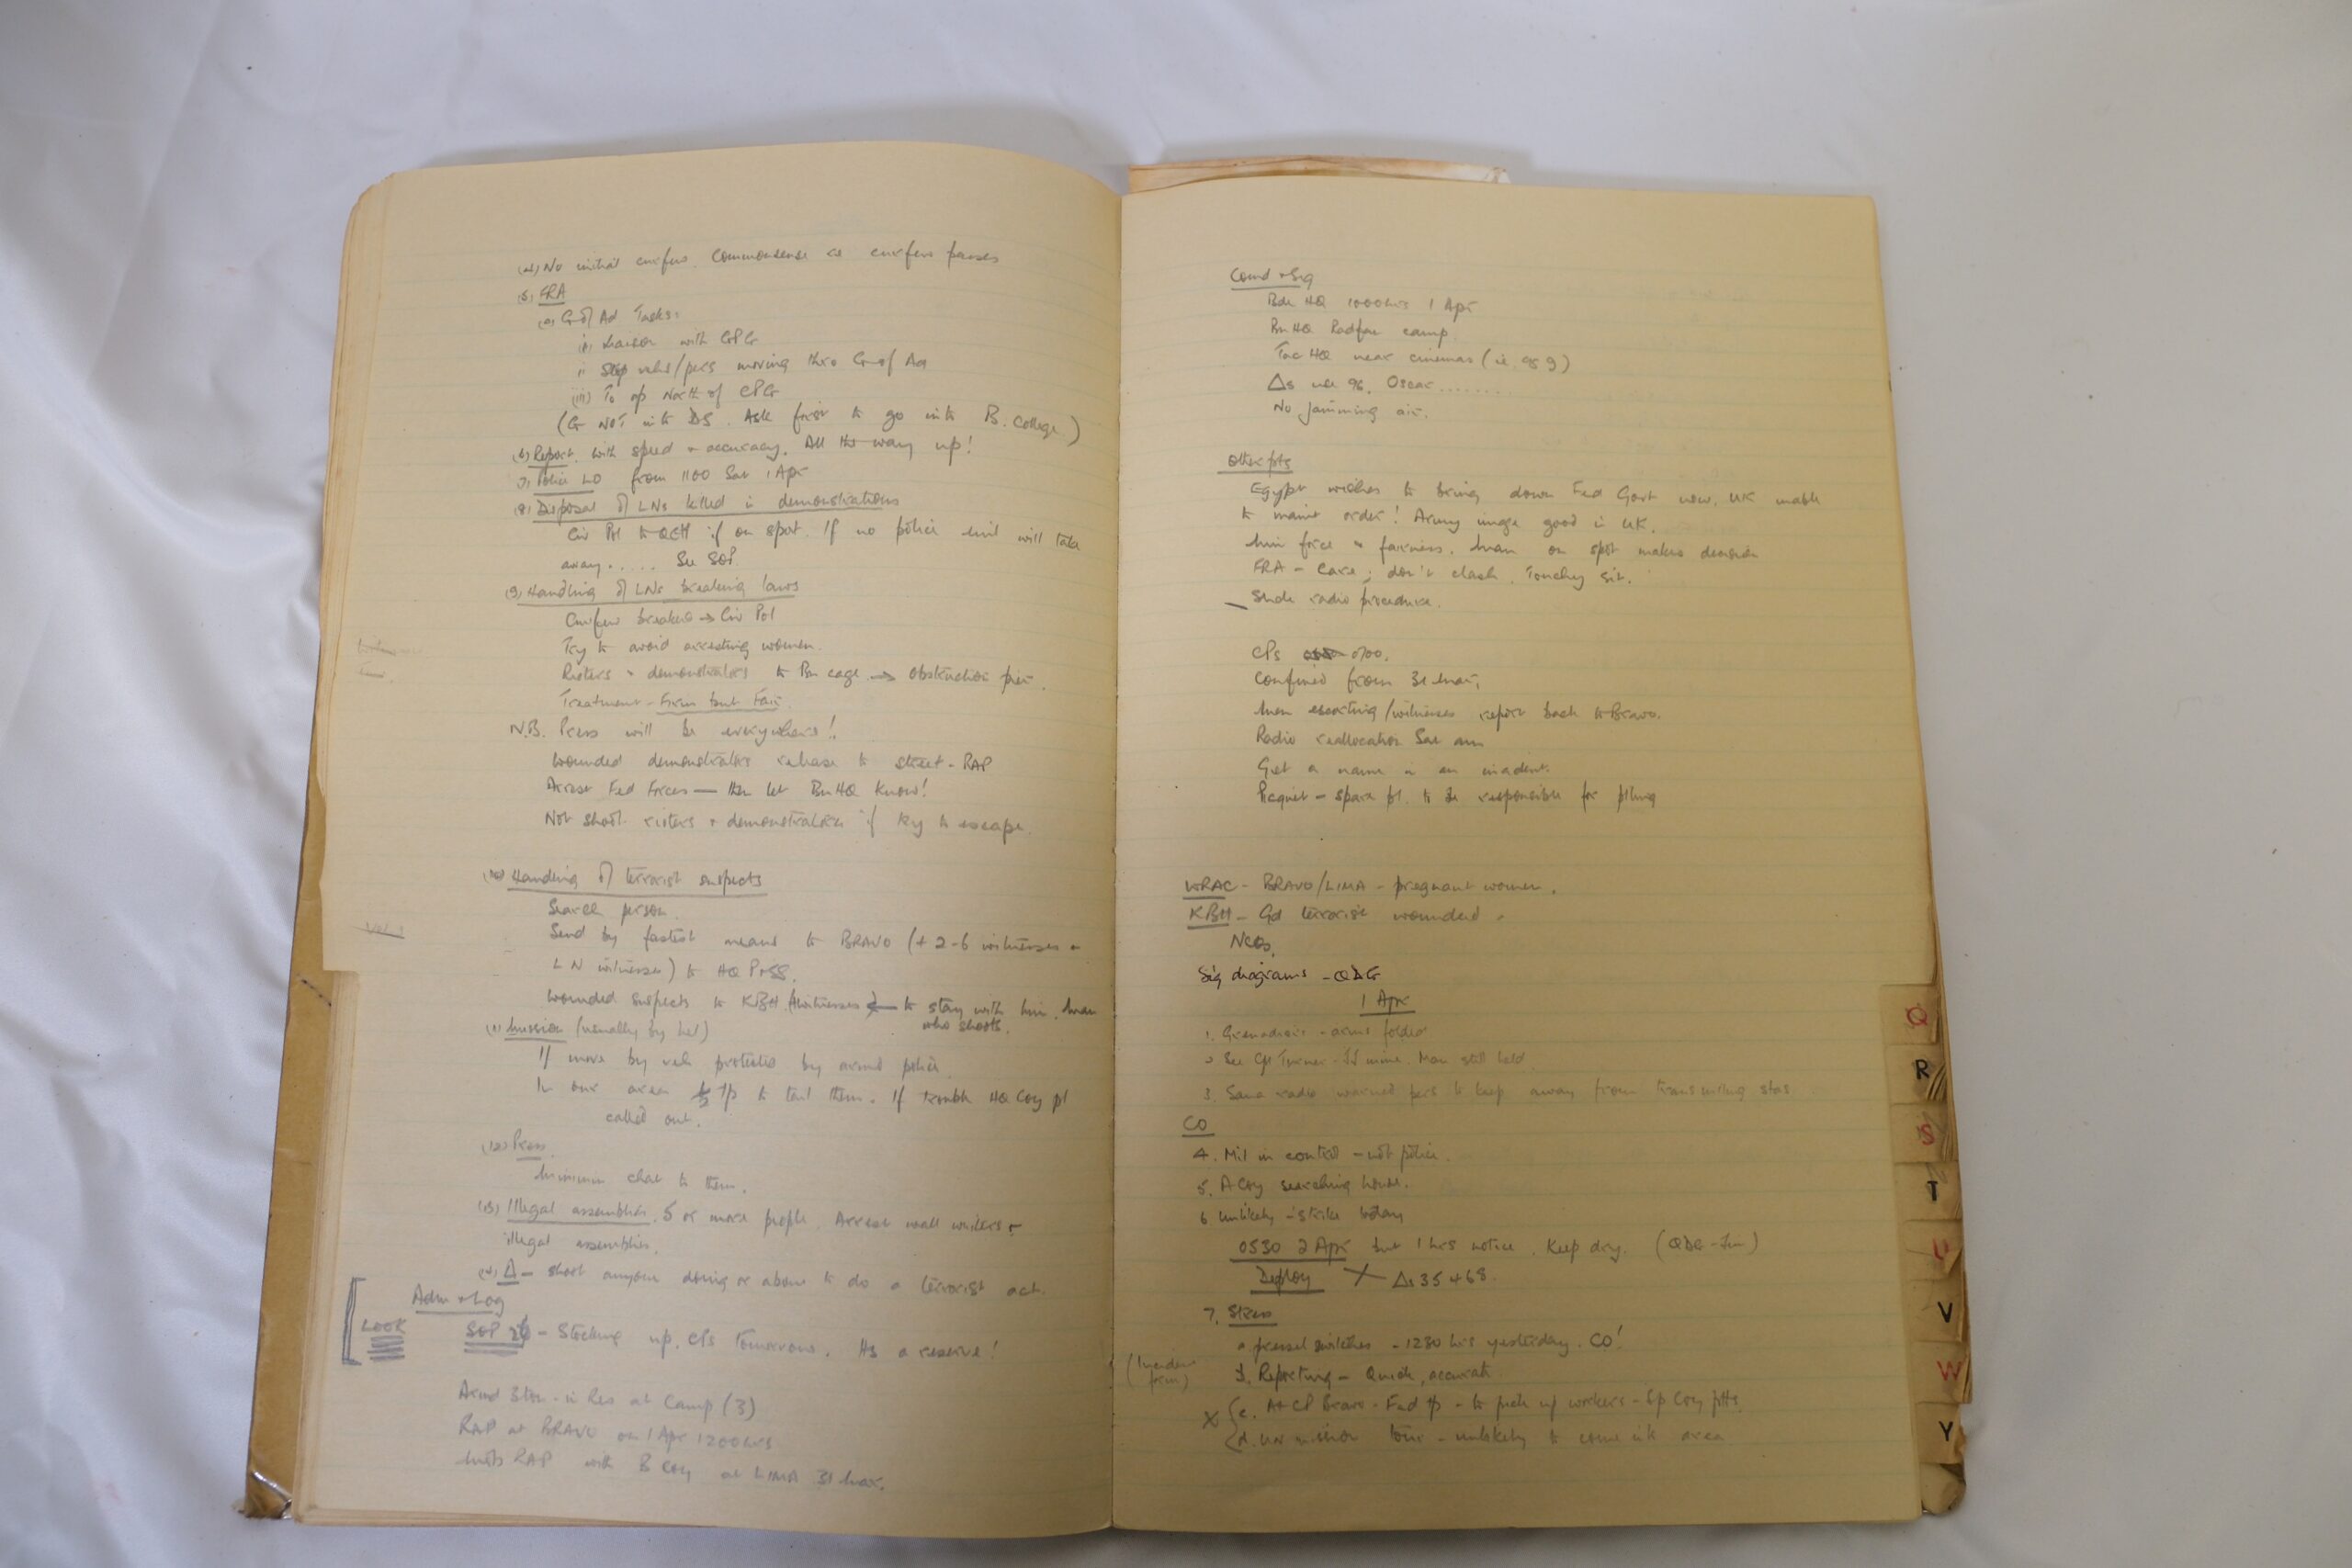 (4) No initial curfew. Commonsense re curfew passes
(5) FRA
(a) G of Ad Tasks:
(i) Liaison with CPG
ii Stop vehs/pers moving thro G of Ad
(iii) To op North of CPG
(G NOT into DS. Ask first to go into B. College.)
(6) Report. with speed + accuracy. All the way up!
(7) Police LO from 1100 Sat 1 Apr
(8) Disposal of LNs killed in demonstrations
Civ Pol to QEH if on spot. If no police unit will take
away..... See SOP.
(9) Handling of LNs breaking laws
Curfew breakers → Civ Pol
Try to avoid arresting women.
Rioters + demonstrators to Bn cage → Obstruction
Treatment - Firm but Fair.
N.B. Press will be everywhere!
Wounded demonstrators release to street - RAP
Arrest Fed Forces — then let Bn HQ know!
Not shoot rioters + demonstrators if try to escape.
(10) Handling of terrorist suspects
Search person.
Send by fastest means to BRAVO (+ 2-6 witnesses +
LN witnesses) to HQ
Wounded suspects to KBH (+witnesses) ← to stay with him. Man
who shoots.
(11) Mission (usually by hel)
If move by veh protected by armd police.
In our area tp to tail them. If trouble HQ Coy pl
called out.
(12) Press.
Minimum chat to them.
(13) Illegal assemblies. 5 or more people. Arrest wall writers +
illegal assemblies.
(14) Δ - shoot anyone doing or about to do a terrorist act.
Adm + Log
LOOK SOP 26 - Stocking up. CPs tomorrow. As a reserve!
Armd in Res at Camp (3)
RAP at BRAVO on 1 Apr 1200 hrs
RAP with B Coy at LIMA 31 Mar.
Comd + Sig
Bde HQ 1000 hrs 1 Apr
Bn HQ Radfan camp
Tac HQ near cinemas (ie. 9)
Δs use 9b. Oscar.......
No jamming air.
Other pts
Egypt wishes to bring down Fed Govt now. UK unable
to maint order! Army image good in UK.
Min force + fairness. Man on spot makes decision
FRA - Care; don't clash. Touchy sit.
Slide radio procedure.
CPs 0700.
Confined from 31 Mar.
Men escorting/witnesses report back to Bravo.
Radio reallocation Sat am
Get a name in an incident.
Picquet - spare pl. to be responsible for
WRAC - BRAVO/LIMA - pregnant women.
KBH - Gd terrorist wounded.
NCOs.
Sig diagrams - QDG
1 Apr
1. Grenadiers - arms folded
2 See Cpl Turner - mine. Man still held.
3. Sana radio warned pers to keep away from transmitting stas
CO
4. Mil in control - not police.
5. A Coy searching house.
6 Unlikely - strike today
0530 2 Apr but 1 hrs notice. Keep dry. (QDG - )
Deploy X Δs 35 + 68.
7.
a pressel switches - 1230 hrs yesterday. CO!
(Incident form) b. Reporting - Quick, accurate.
X {c. At CP Bravo - Fed tp - to pick up workers - Sp Coy
d. UN mission tour - unlikely to come into area
Q
R
S
T
U
V
W
Y